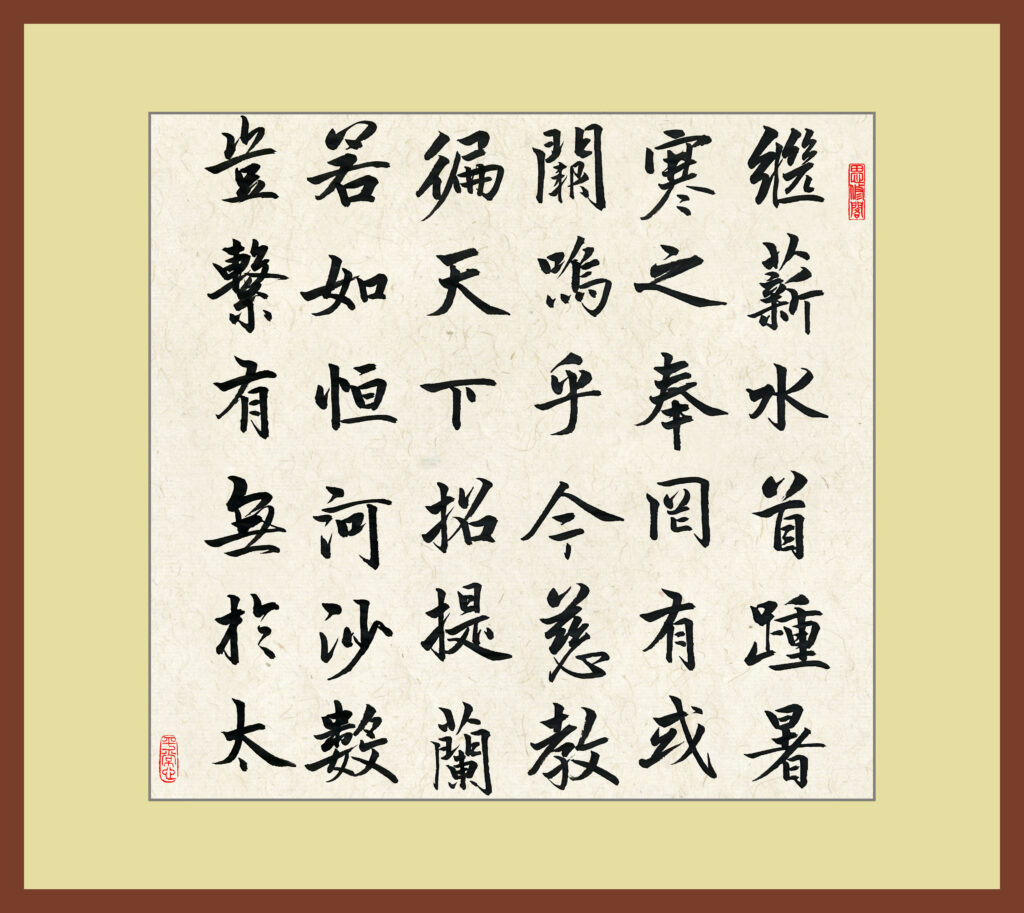 思修閣
繼薪水首踵暑
寒之奉罔有或
闕嗚乎今慈教
徧天下招提蘭
若如恒河沙數
豈繫有無於太